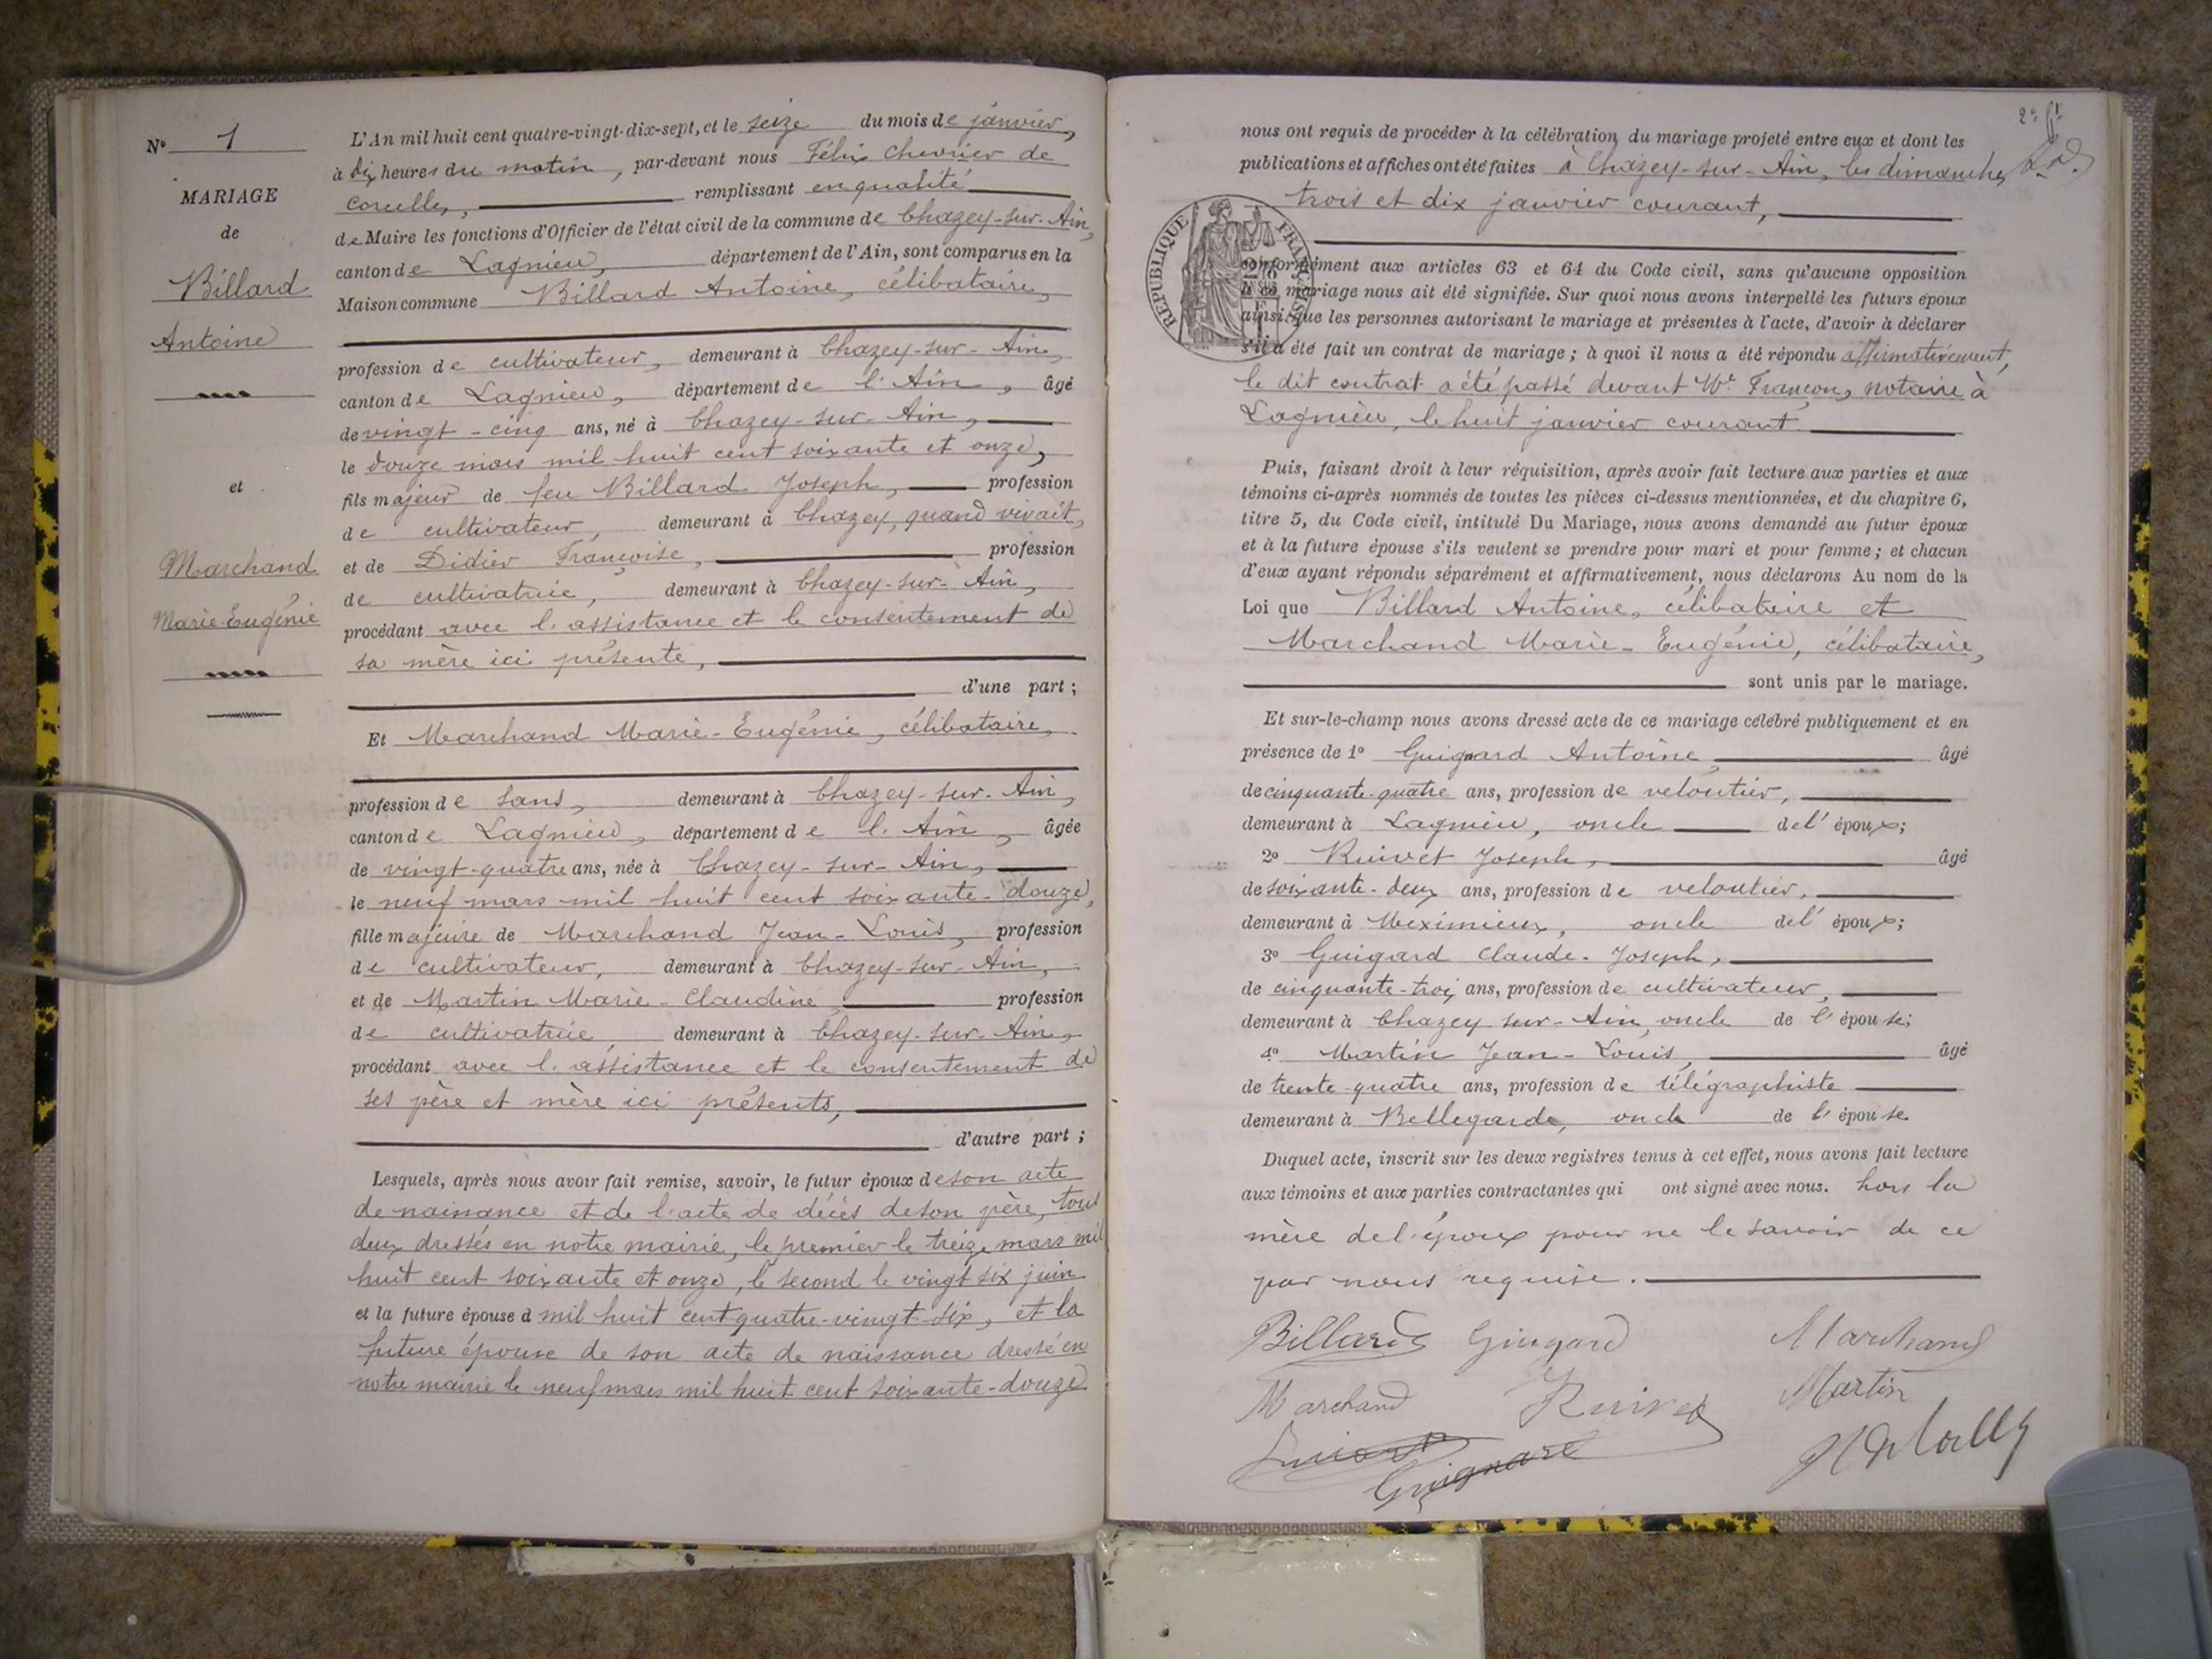 N° 1
MARIAGE
de
Billard
Antoine
et
Marchand
Marie-Eugénie
L'An mil huit cent quatre-vingt-dix-sept, et le seize du mois de janvier,
à dix heures du matin, par-devant nous Félix Chevrier de
Corcelles, remplissant en qualité
de Maire les fonctions d'Officier de l'état civil de la commune de Chazey-sur-Ain,
canton de Lagnieu, département de l'Ain, sont comparus en la
Maison commune Billard Antoine, célibataire,
profession de cultivateur, demeurant à Chazey-sur-Ain,
canton de Lagnieu, département de l'Ain, âgé
de vingt-cinq ans, né à Chazey-sur-Ain,
le douze mars mil huit cent soixante et onze,
fils majeur de feu Billard Joseph, profession
de cultivateur, demeurant à Chazey, quand vivait,
et de Didier Françoise, profession
de cultivatrice, demeurant à Chazey-sur-Ain,
procédant avec l'assistance et le consentement de
sa mère ici présente,
d'une part ;
Et Marchand Marie-Eugénie, célibataire,
profession de sans, demeurant à Chazey-sur-Ain,
canton de Lagnieu, département de l'Ain, âgée
de vingt-quatre ans, née à Chazey-sur-Ain,
le neuf mars mil huit cent soixante-douze,
fille majeure de Marchand Jean-Louis, profession
de cultivateur, demeurant à Chazey-sur-Ain,
et de Martin Marie-Claudine, profession
de cultivatrice, demeurant à Chazey-sur-Ain,
procédant avec l'assistance et le consentement de
ses père et mère ici présents,
d'autre part ;
Lesquels, après nous avoir fait remise, savoir, le futur époux de son acte
de naissance et de l'acte de décès de son père, tous
deux dressés en notre mairie, le premier le treize mars mil
huit cent soixante et onze, le second le vingt six juin
et la future épouse d mil huit cent quatre-vingt-six, et la
future épouse de son acte de naissance dressé en
notre mairie le neuf mars mil huit cent soixante-douze
2e ft
nous ont requis de procéder à la célébration du mariage projeté entre eux et dont les
publications et affiches ont été faites à Chazey-sur-Ain, les dimanches
trois et dix janvier courant,
RÉPUBLIQUE FRANÇAISE
conformément aux articles 63 et 64 du Code civil, sans qu'aucune opposition
à ce mariage nous ait été signifiée. Sur quoi nous avons interpellé les futurs époux
ainsi que les personnes autorisant le mariage et présentes à l'acte, d'avoir à déclarer
s'il a été fait un contrat de mariage ; à quoi il nous a été répondu affirmativement,
le dit contrat a été passé devant Me Françon, notaire à
Lagnieu, le huit janvier courant.
Puis, faisant droit à leur réquisition, après avoir fait lecture aux parties et aux
témoins ci-après nommés de toutes les pièces ci-dessus mentionnées, et du chapitre 6,
titre 5, du Code civil, intitulé Du Mariage, nous avons demandé au futur époux
et à la future épouse s'ils veulent se prendre pour mari et pour femme ; et chacun
d'eux ayant répondu séparément et affirmativement, nous déclarons Au nom de la
Loi que Billard Antoine, célibataire et
Marchand Marie-Eugénie, célibataire,
sont unis par le mariage.
Et sur-le-champ nous avons dressé acte de ce mariage célébré publiquement et en
présence de 1° Guignard Antoine, âgé
de cinquante-quatre ans, profession de veloutier,
demeurant à Lagnieu, oncle de l'époux ;
2° Ruivet Joseph, âgé
de soixante-deux ans, profession de veloutier,
demeurant à Meximieux, oncle de l'époux ;
3° Guigard Claude-Joseph,
de cinquante-trois ans, profession de cultivateur,
demeurant à Chazey-sur-Ain, oncle de l'épouse ;
4° Martin Jean-Louis, âgé
de trente-quatre ans, profession de télégraphiste
demeurant à Bellegarde, oncle de l'épouse.
Duquel acte, inscrit sur les deux registres tenus à cet effet, nous avons fait lecture
aux témoins et aux parties contractantes qui ont signé avec nous. hors la
mère de l'époux pour ne le savoir de ce
par nous requise.
Billard Guigard Marchand
Marchand Ruivet Martin
Guignard